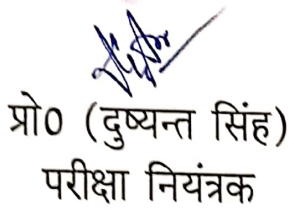 प्रो0 (दुष्यन्त सिंह)
परीक्षा नियंत्रक